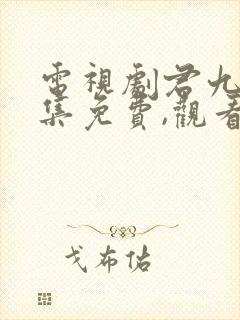 電視劇君九
集免費,觀看
戈布估